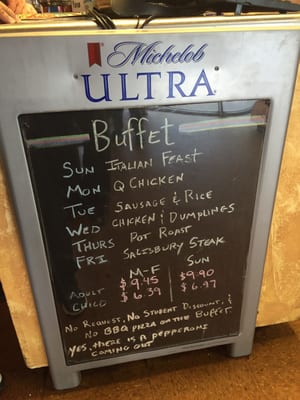 Michelob
ULTRA
Buffet
SUN ITALIAN FEAST
MON Q CHICKEN
TUE SAUSAGE & RICE
WED CHICKEN & DUMPLINGS
THURS POT ROAST
FRI SALISBURY STEAK
M-F SUN
ADULT $9.45 $9.90
CHILD $6.39 $6.97
NO REQUEST, NO STUDENT DISCOUNT, &
NO BBQ PIZZA ON THE BUFFET
YES, THERE IS A PEPPERONI
COMING OUT